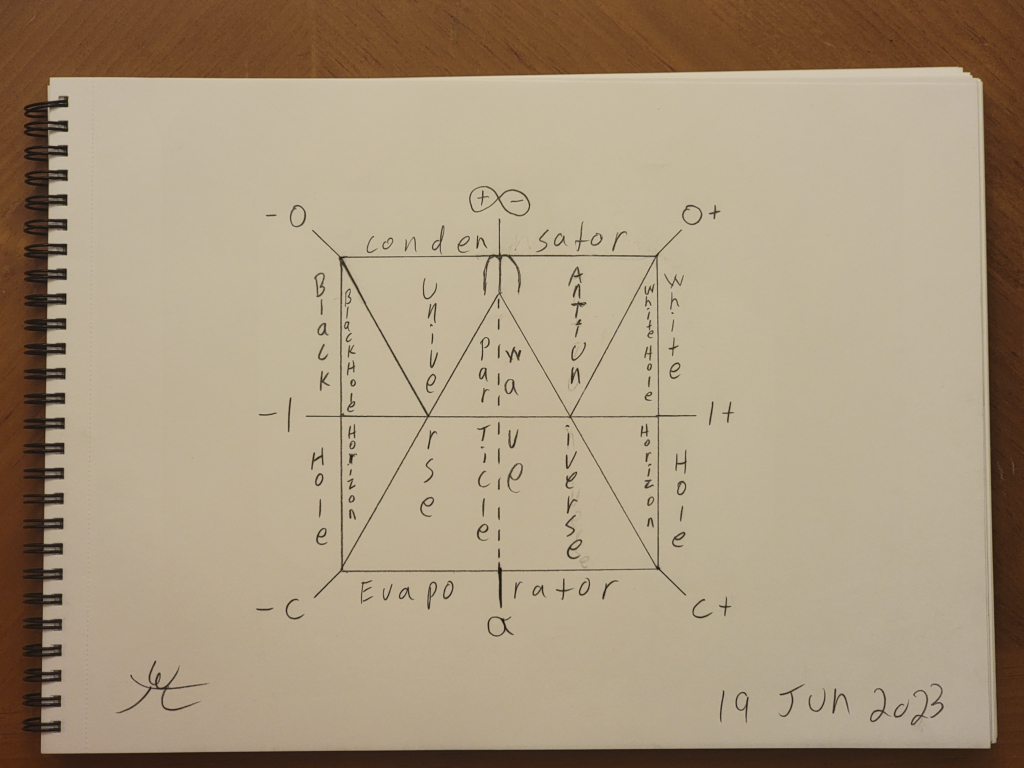 + -
- 0
0+
conden sator
Black Hole
Black Hole Horizon
Universe
ParTicle
wave
AnTiUniverse
White Hole Horizon
white Hole
-1
1+
Evapo rator
- c
c+
α
19 Jun 2023